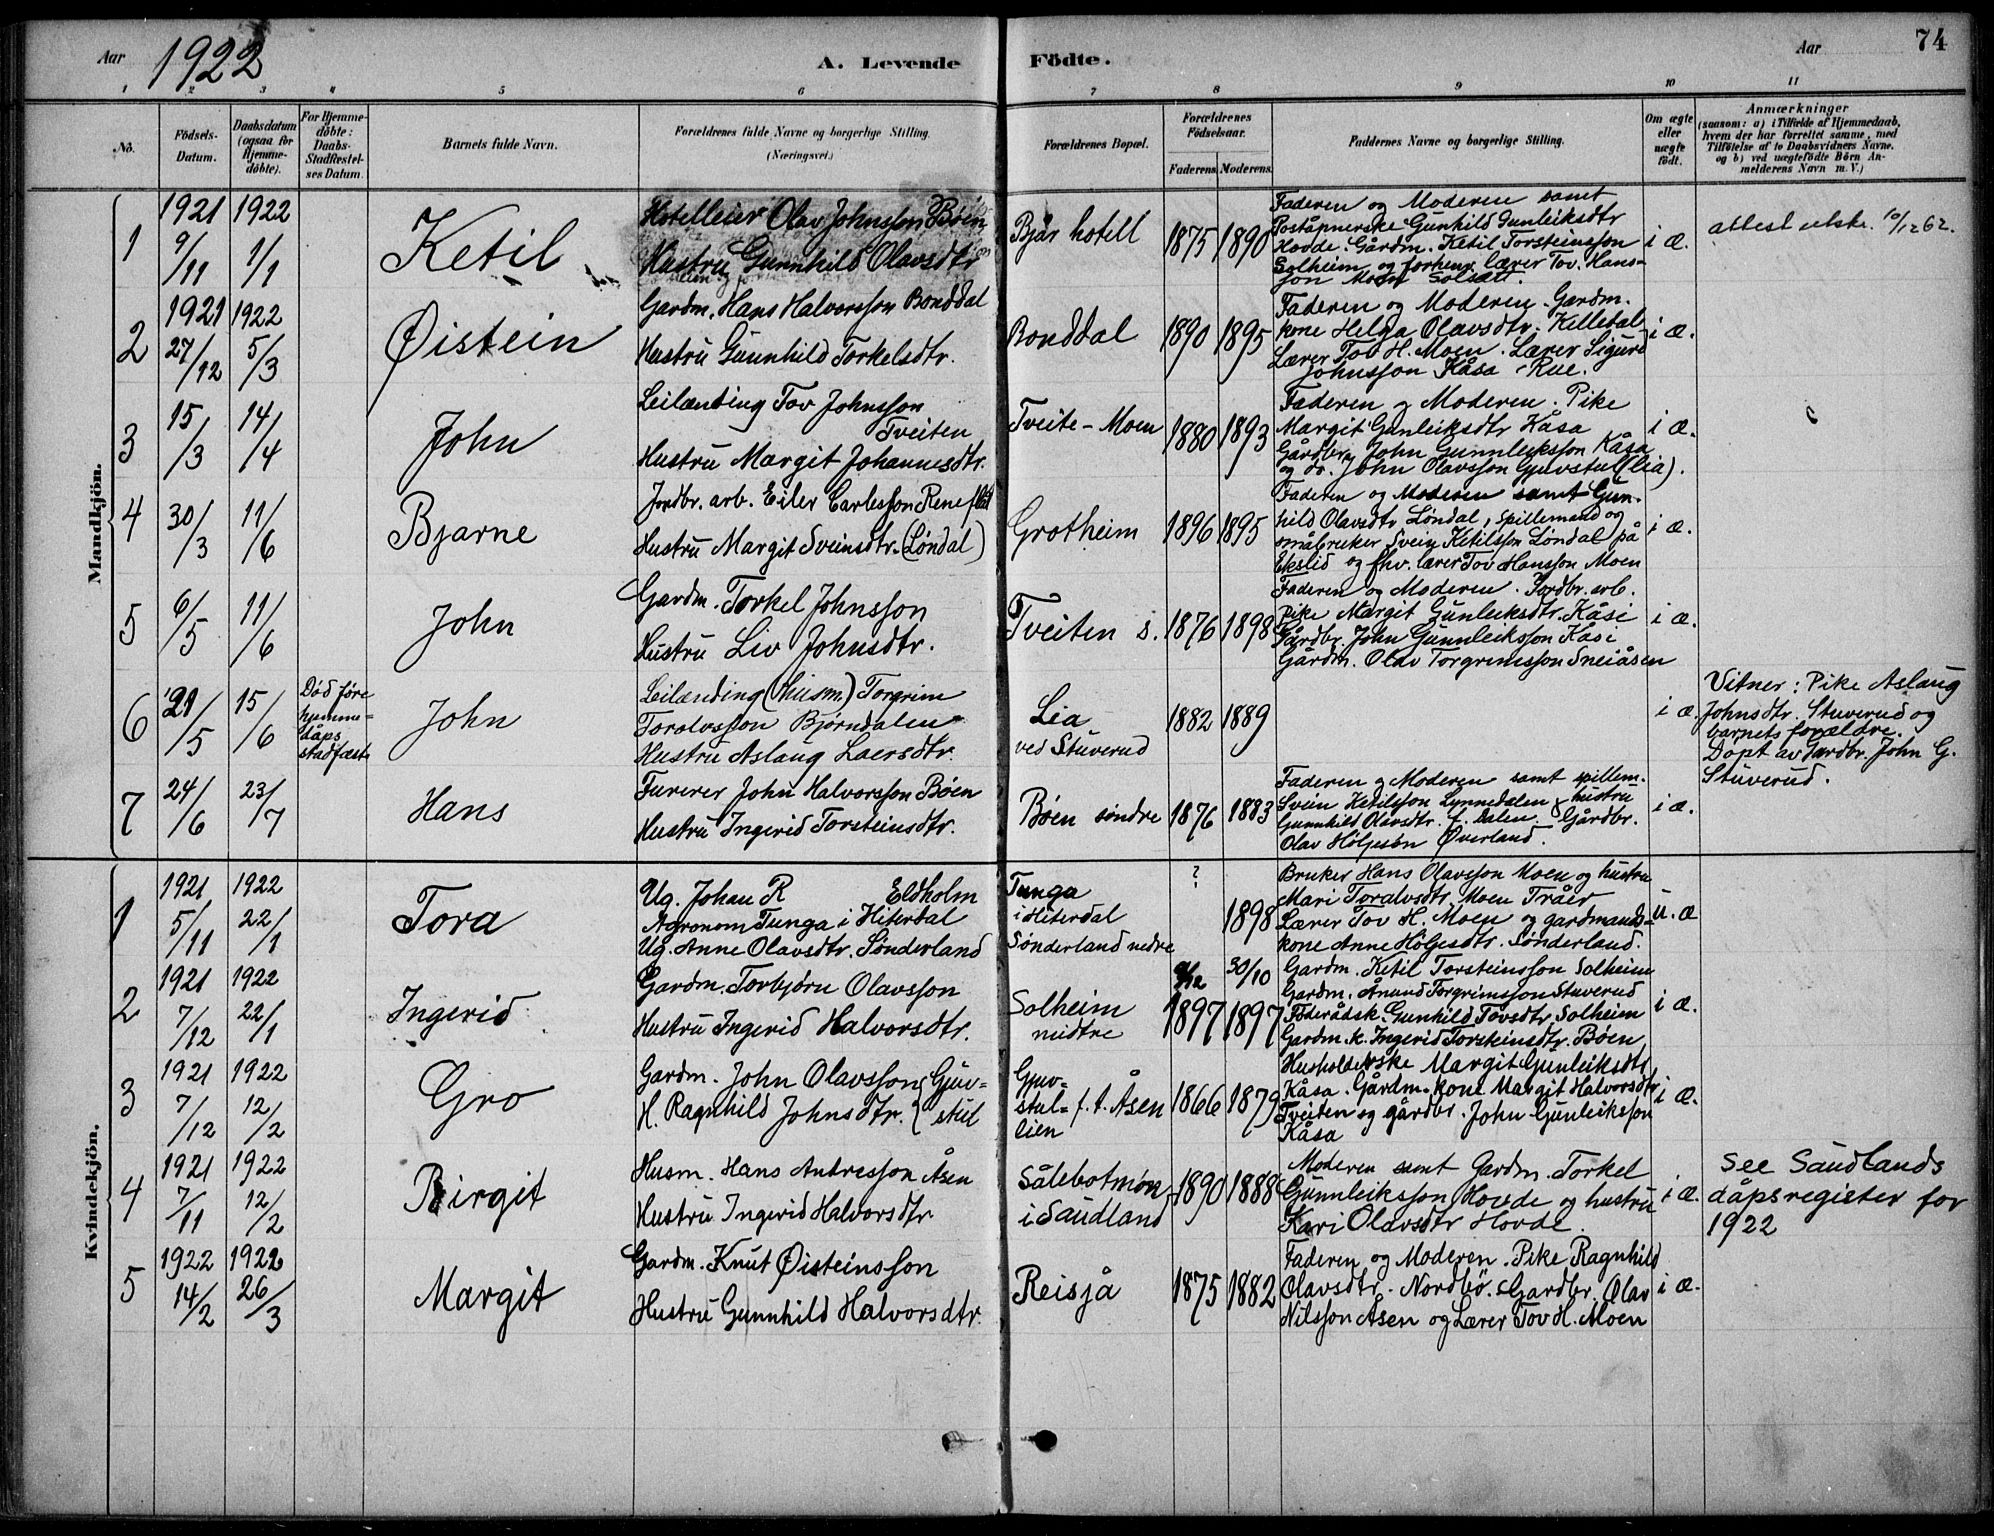 Aar 1922
A. Levende Födte.
Aar
74
1 2 3 4 5 6 7 8 9 10 11
No.
Födsels-Datum.
Daabsdatum (ogsaa for Hjemme-döbte).
For Hjemme-döbte: Daabs-Stadfæstel-ses Datum.
Barnets fulde Navn.
Forældrenes fulde Navne og borgerlige Stilling.
(Næringsvei.)
Forældrenes Bopæl.
Forældrenes Födselsaar.
Faderens Moderens
Faddernes Navne og borgerlige Stilling.
Om ægte eller uægte födt.
Anmærkninger
(saasom: a) i Tilfælde af Hjemmedaab,
hvem der har forrettet samme, med
Tilföielse af to Daabsvidners Navne.
og b) ved uægtefödte Börn An-
melderens Navn m. V.)
Mandkjön.
1
1921 9/11
1922 1/1
Ketil
Hotelleier Olav Johnsson Bøen
Hustru Gunnhild Olavsdtr
Bjår hotell
1875 1890
Faderen og Moderen samt
Poståpnerske Gunhild Gunleiksdtr
Hovde. Gårdm. Ketil Torsteinsson
Solheim og forhenv. lærer Tov. Hans-
son Moen
i æ.
attest utste. 10/12 62.
2
1921 27/12
1922 5/3
Øistein
Gardm. Hans Halvorsson Bonddal
Hustru Gunnhild Torkelsdtr.
Bonddal
1890 1895
Faderen og Moderen. Gardm.
kone Helga Olavsdtr. Killedal
Lærer Tov H. Moen. Lærer Sigurd
Johnsson Kåsa - Rue.
i æ.
3
15/3
14/4
John
Leilænding Tov Johnsson
Tveiten
Hustru Margit Johannesdtr.
Tveite - Moen
1880 1893
Faderen og Moderen. Pike
Margit Gunleiksdtr Kåsa
Gårdbr. John Gunnleiksson Kåsa
og do. John Olavsson Gjuvstul (lia).
i æ.
4
30/3
11/6
Bjarne
Jordbr. arb. Eiler Carlsson Reneflot
Hustru Margit Sveinsdtr. (Løndal)
Grotheim
1896 1895
Faderen og Moderen samt Gun-
hild Olavsdtr Løndal, spillemand og
småbruker Svein Ketilsson Løndal på
Ekslid og fhv. lærer Tov Hansson Moen
i æ.
5
6/5
11/6
John
Gardm. Torkel Johnsson
Hustru Liv Johnsdtr.
Tveiten s.
1876 1898
Faderen og Moderen. Jordbr. arb.
pike Margit Gunleiksdtr. Kåsi
Gårdbr. John Gunnleiksson Kåsi
Gårdm. Olav Torgrimsson Sneiåsen
i æ.
6
21/5
15/6
Død føre
hjemme=
dåps
stadfæst.
John
Leilænding (husm) Torgrim
Toralvsson Bjørndalen
Hustru Aslaug Laersdtr.
Lia
ved Stuverud
1882 1889
i æ.
Vitner: Pike Aslaug
Johnsdtr. Stuverud og
barnets forældre.
Døpt av Gardbr. John G.
Stuverud.
7
24/6
23/7
Hans
Furerer John Halvorsson Bøen
Hustru Ingerid Torsteinsdtr.
Bøen søndre
1876 1883
Faderen og Moderen samt spillem.
Svein Ketilsson Lynnedalen & hustru
Gunnhild Olavsdtr. f. Dalen. Gårdbr.
Olav Hölgeson Øverland.
i æ.
Kvindekjön.
1
1921 5/11
1922 22/1
Tora
Ug. Johan R Eldholm
Agronom Tunga i Hiterdal
Ug. Anne Olavsdtr. Sønderland
Tunga
i Hiterdal
Sønderland nedre
?
1898
Bruker Hans Olavsson Moen og hustru
Mari Toralvsdtr. Moen Tråir
Lærer Tov H. Moen og gardmands-
kone Anne Hölgesdtr. Sønderland.
u. æ
2
1921 7/12
1922 22/1
Ingerid
Gardm. Torbjørn Olavsson
Hustru Ingerid Halvorsdtr.
Solheim
midtre
1897
30/10 1897
Gardm. Ketil Torsteinsson Solheim
Gardm. Ånund Torgrimsson Stuverud
Föderådsk. Gunhild Tovsdtr. Solheim
Gardm. k. Ingerid Torsteinsdtr. Bøen
i æ.
3
1921 7/12
1922 12/2
Gro
Gardm. John Olavsson Gjuv-
H. Ragnhild Johnsdtr. } stul
Gjuv-
stul- f. t. Åsen
lien
1866 1879
Husholderske Margit Gunleiksdtr
Kåsa. Gårdm.-kone Margit Halvorsdtr
Tveiten og gårdbr. John Gunleiksson
Kåsa
i æ.
4
1921 7/11
1922 12/2
Birgit
Husm. Hans Andresson Åsen
Hustru Ingerid Halvorsdtr.
Sålebotmøn
i Saudland
1890 1888
Moderen samt Gardm. Torkel
Gunnleiksson Hovde og hustru
Kari Olavsdtr Hovde.
i æ.
See Saudlands
dåpsregister for
1922
5
1922 14/2
1922 26/3
Margit
Gardm. Knut Øisteinsson
Hustru Gunnhild Halvorsdtr.
Reisjå
1875 1882
Faderen og Moderen. Pike Ragnhild
Olavsdtr. Nordbö. Gardbr. Olav
Nilsson Åsen og Lærer Tov H. Moen
i æ.